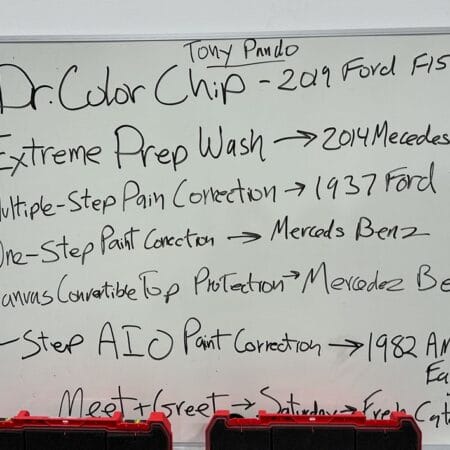 Tony Pando
Dr. Color Chip - 2019 Ford F15
Extreme Prep Wash → 2014 Mecedes
ultiple-Step Pain Correction → 1937 Ford
One-Step Paint Correction → Merceds Benz
anvas Convertible Top Protection → Mercedez Be
-Step AIO Paint Correction → 1982 Am
Ea
Meet+Greet → Saturday → Fresh Cat